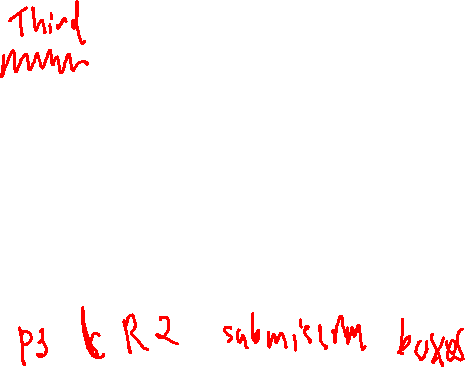 Third
P3 & R2 submission boxes